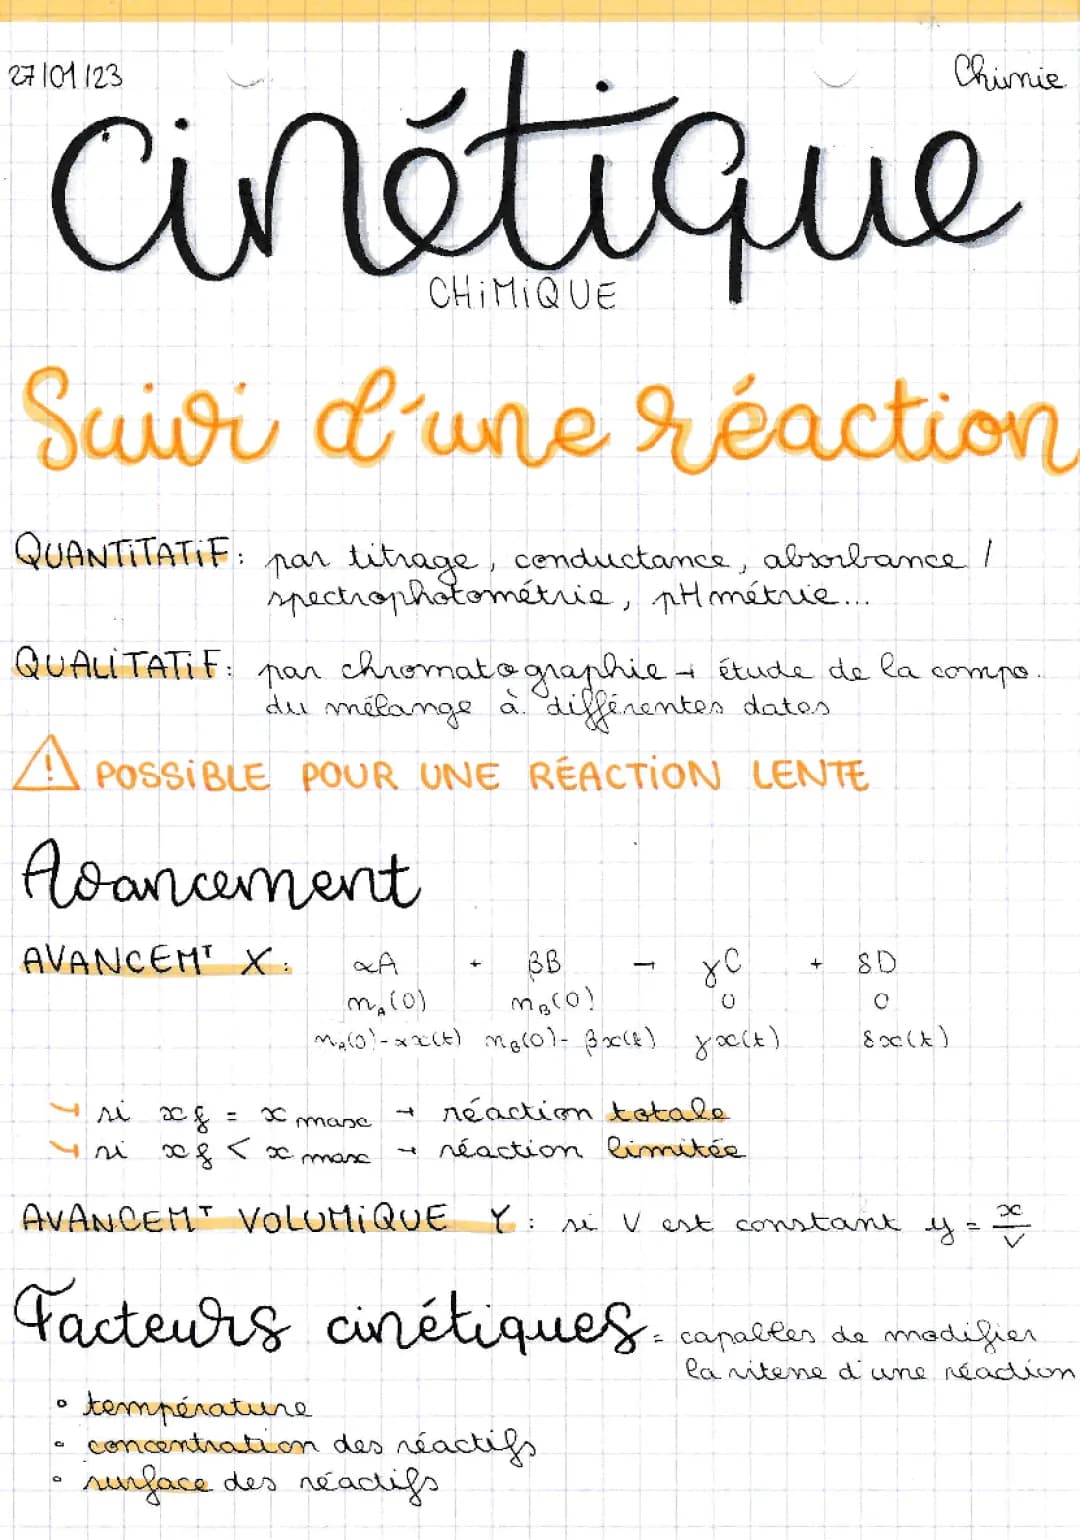 27/01/23
Chimie
cinétique
CHIMIQUE
Suivi d'une réaction
QUANTITATIF : par titrage, conductance, absorbance /
spectrophotométrie, pH métrie...
QUALITATIF : par chromatographie → étude de la compo.
du mélange à différentes dates
! POSSIBLE POUR UNE RÉACTION LENTE
Avancement
AVANCEMᵀ X : αA + βB → γC + δD
n_A(0) n_B(0) 0 0
n_A(0) - αx(t) n_B(0) - βx(t) γx(t) δx(t)
↳ si xf = x max → réaction totale
↳ si xf < x max → réaction limitée
AVANCEMᵀ VOLUMIQUE Y : si V est constant y = x/V
Facteurs cinétiques = capables de modifier
la vitesse d'une réaction
• température
• concentration des réactifs
• surface des réactifs